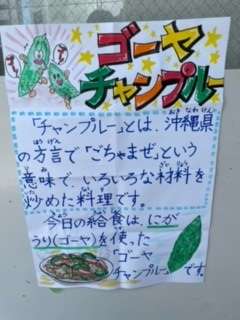 ゴーヤ
チャンプルー
「チャンプルー」とは、沖縄県
の方言で「ごちゃまぜ」という
意味で、いろいろな材料を
炒めた料理です。
今日の給食は、にが
うり(ゴーヤ)を使った
「ゴーヤ
チャンプルー」です。